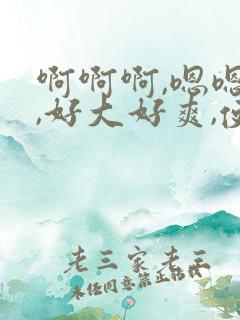 啊啊啊,嗯嗯
,好大好爽,
老三家老三
未经同意禁止转载